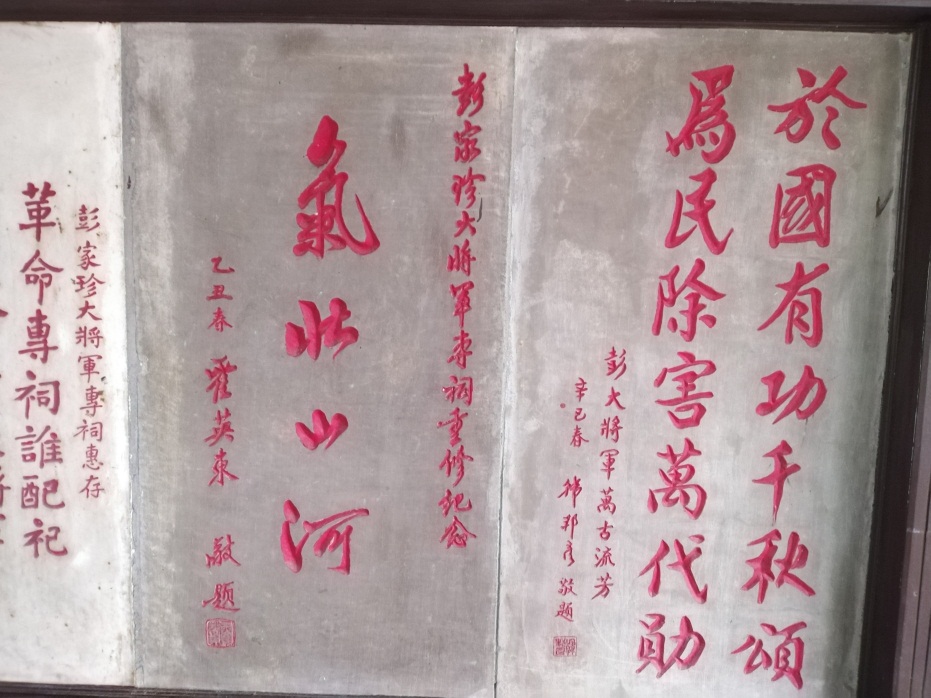 於國有功千秋頌
爲民除害萬代勛
彭大將軍萬古流芳
辛巳春 韓邦彥敬題
彭家珍大將軍专祠重修纪念
氣壮山河
乙丑春 霍英東 敬題
彭家珍大將軍專祠惠存
革命專祠誰配祀